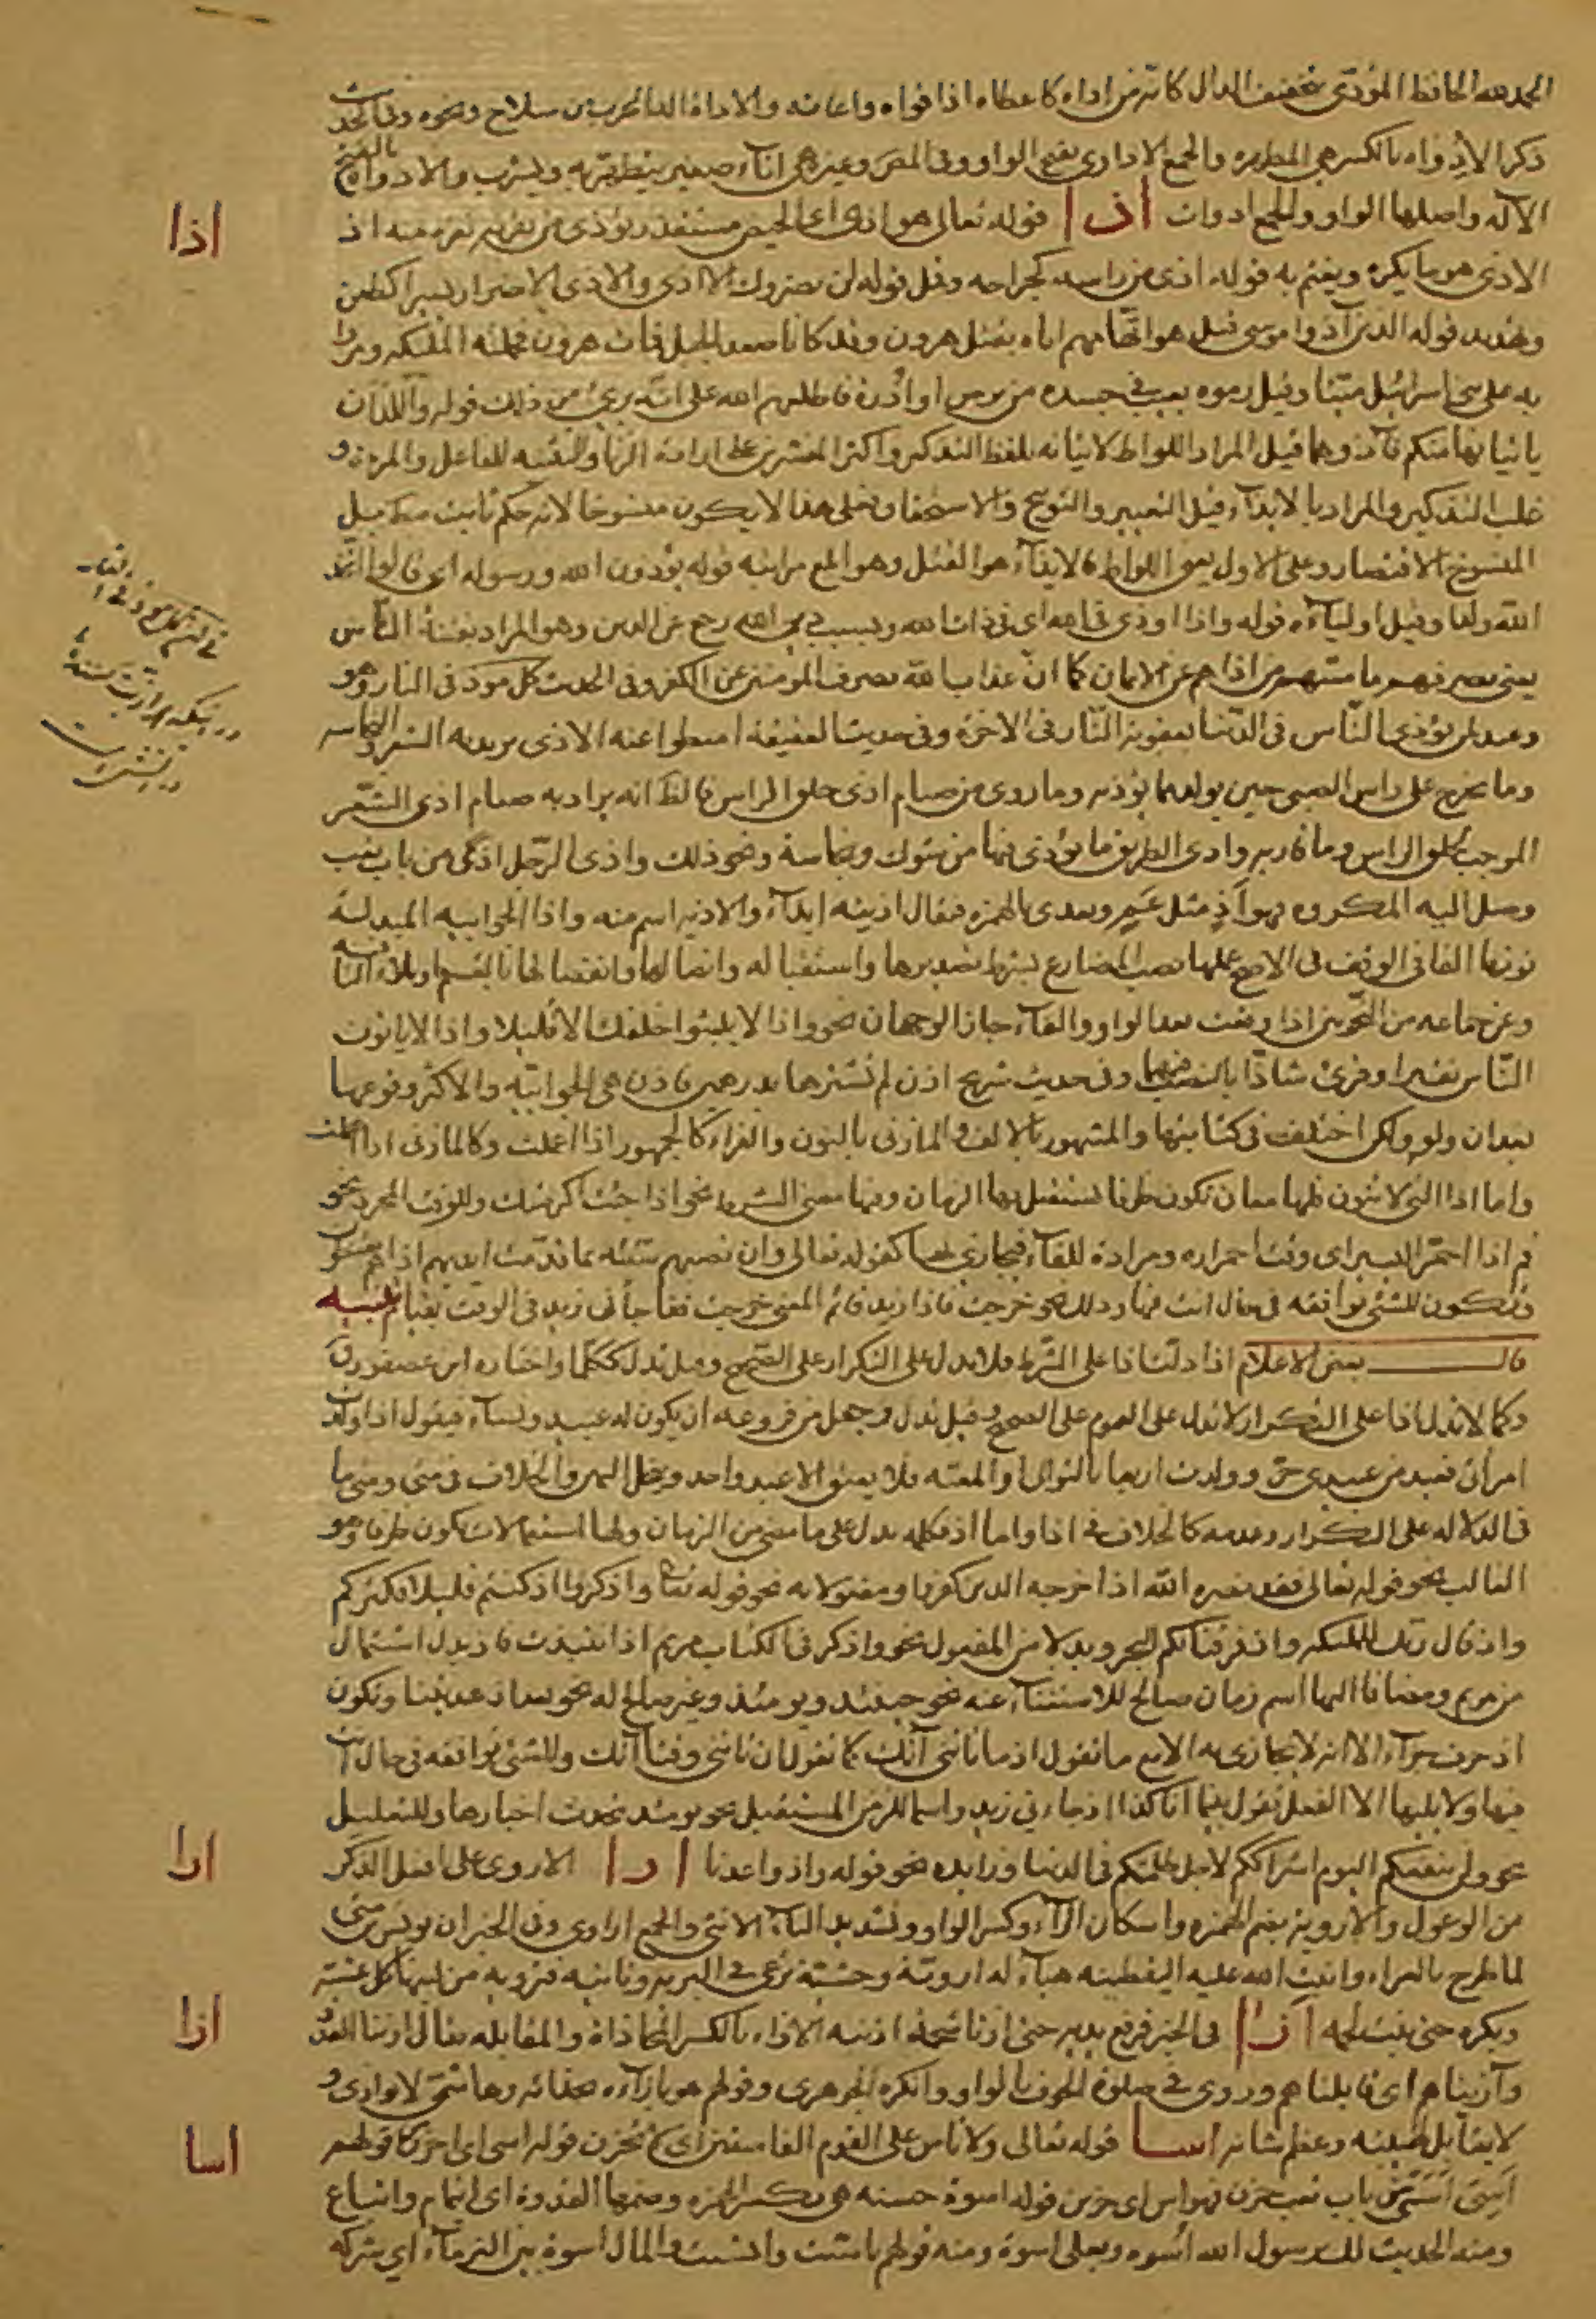 الحمد لله الحافظ المؤدى بتخفيف الدال كانه من اداه كاعطاه اذا قواه واعانه والاداة الة الحرب من سلاح ونحوه وفى الحديث
ذكر الاِدواه بالكسر هى المطهره والجمع الاداوى بفتح الواو وفى المص وغيره هى اناء صغير يتطهر به ويشرب والادواة بالفتح
الآله واصلها الواو والجمع ادوات اذا قوله تعالى هو اذى اى الحيض مستقذر يؤذى من يقربه نفرة منه اذ
الاذى هو ما يكره ويغتم به قوله اذى من راسه كجراحه وقمل قوله لن يضروك الا اذى والاذى الاضرار يسيرا كطعن
وتهديد قوله الذين آذوا موسى قيل هو اتهامهم اياه بقتل هرون وقد كانا صعدا الجبل فمات هرون فحملته الملئكه ومروا
به على بنى اسرائيل ميتا وقيل رموه بعيب فى جسده من برص او اُدرة فاطلعهم الله على انه برئ من ذلك قوله واللذان
ياتيانها منكم فآذوهما قيل المراد اللواط لاتيانه بلفظ التذكير واكثر المفسرين على ارادة الزنا والتثنيه للفاعل والمراة و
غلب التذكير والمراد بالايذاء قيل التعيير والتوبيخ والاستخفاف فعلى هذا لا يكون منسوخا لانه حكم ثابت مط بل
المنسوخ الاقتصار وعلى الاول يعنى اللواط فالايذاء هو القتل وهو المع مراتبه قوله يؤذون الله ورسوله اى قالوا اتخذ
الله ولدا وقيل اولياءه قوله واذا اوذى فى الله اى فى ذات الله وبسبب دين الله رجع عن الدين وهو المراد بفتنة الناس
يعنى يصرفهم ما مسهم من اذاهم عن الايمان كما ان عذاب الله يصرف المؤمنين عن الكفر وفى الحديث كل موذ فى النار وهو
وعيد لمن يؤذى الناس فى الدنيا بعقوبة النار فى الاخرة وفى حديث العقيقه اميطوا عنه الاذى يريد به الشعر والنجاسه
وما يخرج على راس الصبى حين يولد مما يؤذيه وما روى من صيام اذى حلق الراس فالظ انه يراد به صيام اذى الشعر
الموجب لحلق الراس وما قاربه واذى الطريق ما يؤذى فيها من شوك ونجاسة ونحو ذلك واذى الرجل اذىً من باب تعب
وصل اليه المكروه فهو اَذٍ مثل عَمٍ ويعدى بالهمزه فيقال اذيته ايذاء والاذية اسم منه واذا الجوابيه المبدلة
نونها الفا فى الوقف فى الاصح عملها نصب المضارع بشرط تصديرها واستقباله واتصالها وانفصالها بالقسم او بلاء النافيه
وعن جماعه من النحويين اذا وقعت بعد الواو والفاء جاز الوجهان نحو واذا لا يلبثوا خلفك الا قليلا واذا لا يأتون
الناس نقيرا وقرئ شاذا بالنصب فيهما وفى حديث شريح اذن لم نشترها بدرهمين فاذن هى الجوابيه والاكثر وقوعها
بعد ان ولو ولكن اختلف فى كتابتها والمشهور بالالف والمازنى بالنون والفراء كالجمهور اذا اعملت وكالمازنى اذا اهملت
واما اذا التى لا تنون فلها معان تكون ظرفا يستقبل بها الزمان وفيها معنى الشرط نحو اذا جئت اكرمتك وللوقت المجرد نحو
قم اذا احمر البسر اى وقت احمراره ومرادة للفاء فيجازى بها كقوله تعالى وان تصبهم سيئه بما قدمت ايديهم اذا هم يقنطون
وتكون للشئ توافقه فى حال انت فيها وذلك نحو خرجت فاذا زيد قائم المعنى خرجت ففاجأنى زيد فى الوقت بقيام تنبيه
قال بعض الاعلام اذا دلت اذا على الشرط فلا تدل على التكرار على الصحيح وقيل تدل ككلما واختاره ابن عصفور
وكما لا تدل اذا على التكرار لا تدل على العموم على الصحيح وقيل تدل وجعل من فروعه ان يكون له عبيد ونساء فيقول اذا ولدت
امراتى فعبد من عبيدى حر وولدت اربعا بالتوالى او المعيه فلا يعتق الا عبد واحد وينحل اليمين والخلاف فى متى ومتى ما
فى الدلاله على التكرار وعدمه كالخلاف فى اذا واما اذ فكلمه تدل على ما مضى من الزمان ولها استعمالات تكون ظرفا وهو
الغالب نحو قوله تعالى فقد نصره الله اذ اخرجه الذين كفروا ومفعولا به نحو قوله تعالى واذكروا اذ كنتم قليلا فكثركم
واذ قال ربك للملئكه واذ فرقنا بكم البحر وبدلا من المفعول نحو واذكر فى الكتاب مريم اذ انتبذت فاذ بدل اشتمال
من مريم ومضافا اليها اسم زمان صالح للاستغناء عنه نحو حينئذ ويومئذ وغير صالح له نحو بعد اذ هديتنا وتكون
اذ حرف جزاء الا انه لا يجازى به الا مع ما تقول اذ ما تاتنى آتك كما تقول ان تاتنى وقتا آتك وللشئ توافقه فى حال انت
فيها ولا يليها الا الفعل تقول بينما انا كذا اذ جاءنى زيد واسما للزمن المستقبل نحو يومئذ تحدث اخبارها وللتعليل
نحو ولن ينفعكم اليوم اشراككم لاجل ظلمكم فى الدنيا وزايده نحو قوله واذ واعدنا ارا الاروى على افعل الذكر
من الوعول والاروية بضم الهمزه واسكان الراء وكسر الواو وتشديد الياء الانثى والجمع اراوى وفى الخبر ان يونس بن متى
لما طرح بالعراء وانبت الله عليه اليقطينه هياء له اروية وحشية ترعى فى البريه وتاتيه فترويه من لبنها كل عشية
وبكره حتى نبت لحمه ازا فى الخبر فرفع يديه حتى ازتا شحمة اذنيه الازاء بالكسر المحاذاة والمقابله يقال ازينا العدو
وآزيناهم اى قابلناهم وروى فى صلوة الخوف بالواو وانكره الجوهرى وقولهم هو بازاءه بحذائه وهاشمى لا يوازى و
لا يقابل لهيبته وعظم شانه اسا قوله تعالى ولا تاس على القوم الفاسقين اى لا تحزن قوله اسى اى احزن كقولهم
اَسِىَ اسًى من باب تعب حزن فهو اس اى حزين قوله اسوة حسنه هى بكسر الهمزه وضمها القدوة اى ائتمام واتباع
ومنه الحديث لك برسول الله اسوه وبعلى اسوة ومنه قولهم تاسيت وائتسيت والمال اسوة بين الغرماء اى شركه
اذا
ارا
ازا
اسا